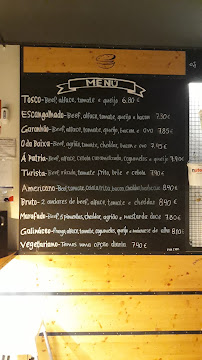 MENU
Tosco-Beef, alface, tomate e queijo 6.80€
Escangalhado-Beef, alface, tomate, queijo e bacon 7.30€
Garanhão-Beef, alface, tomate, queijo, bacon e ovo 7.85€
Beef, agrião, tomate, cheddar, bacon e ovo 7.95€
À Patria-Beef, alface, cebola caramelizada, cogumelos e queijo
Turista-Beef, rúcula, tomate frito, brie e cebola
Americano-Beef, tomate, bacon, cheddar, 8.90€
Bruto-2 andares de beef, alface, tomate e cheddar 8.90€
Beef, cheddar, agrião e mostarda doce 7.80€
Galináceo-Frango, alface, tomate, cogumelos, queijo e maionese de alho 8.00€
Vegetariano-Temos uma opção diária 7.40€